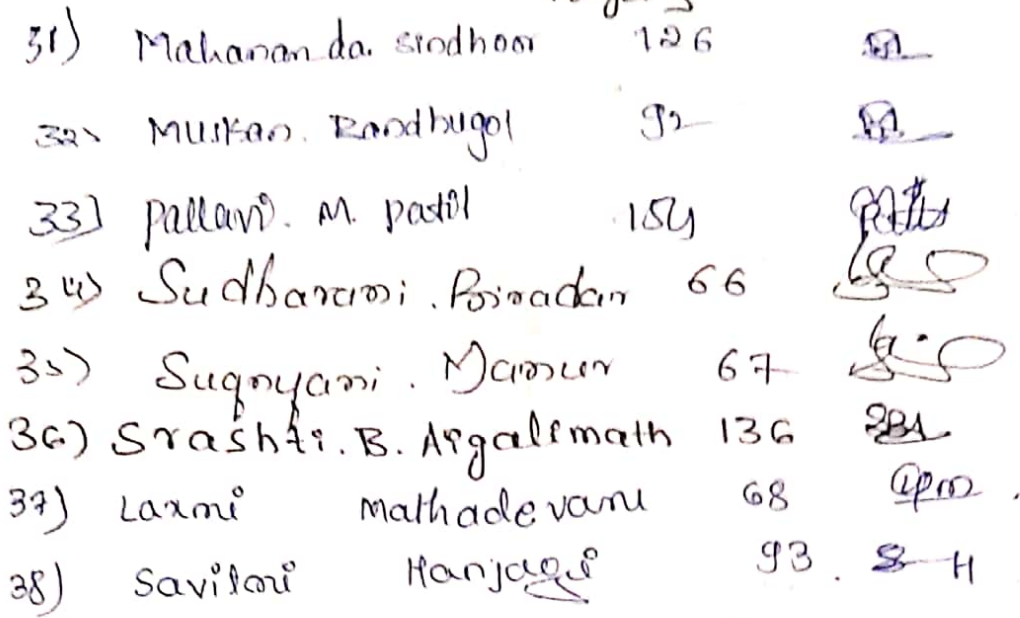 31) Mahananda. sindhoor 126
32) Muskan. Bandhugol 92
33) Pallavi. M. patil 154
34) Sudharani. Poiradar 66
35) Sugnyani. Mannur 67
36) Srashti. B. Aigalimath 136
37) Laxmi Mathadevaru 68
38) Savitori Hanjagi 93. S H